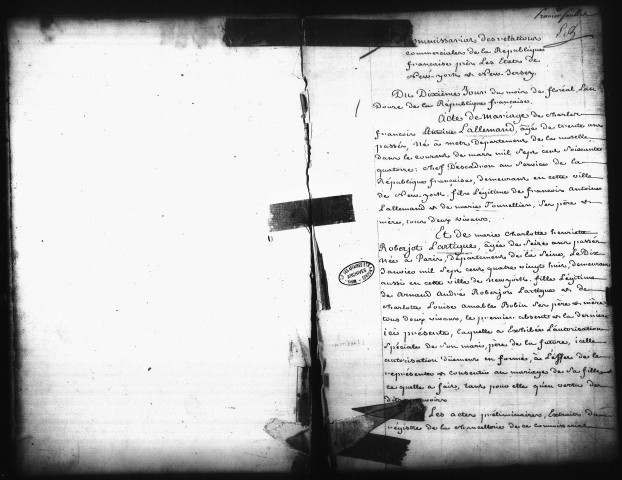 S. 3
Commissariat des relations
commerciales de la République
françaises près Les Etats de
New-york et New-Jersey.
Du Dixième Jour du mois de floréal L'an
Douze de la République françaises.
Acte de Mariage de charles
francois Antoine Lallemand, âgé de trente ans
passés, Né à metz, département de la moselle
dans le courant de mars mil Sept cent Soixante
quatorze; chef D'escadron au Service de la
République francaises, demeurant en cette ville
de New-york, fils Légitime de francois Antoine
Lallemand et de marie Tounellier, Ses père et
mère, tous deux vivans.
Et de marie charlotte henriette
Roberjot Lartigue, âgée de Seize ans passés
Née à Paris, département de la Seine, Le Dix
Janvier mil Sept cent quatre vingt huit, demeurant
aussi en cette ville de Newyork, fille Légitime
de Armand André Roberjot Lartigue et de
charlotte Louise Amable Bobin Ses père et mère
tous deux vivans, le premier absent et la dernière
ici présente, laquelle a Exhibée L'autorisation
Spéciale de Son mari, père de la future, icelle
autorisation dûement en formes, à L'effet de le
représenter et consentir au mariage de Sa fille
ce qu'elle a fait, tant pour elle qu'en vertu des
dits pouvoirs
Les actes préliminaires, Extraits du
registre de la chancellerie de ce commissariat